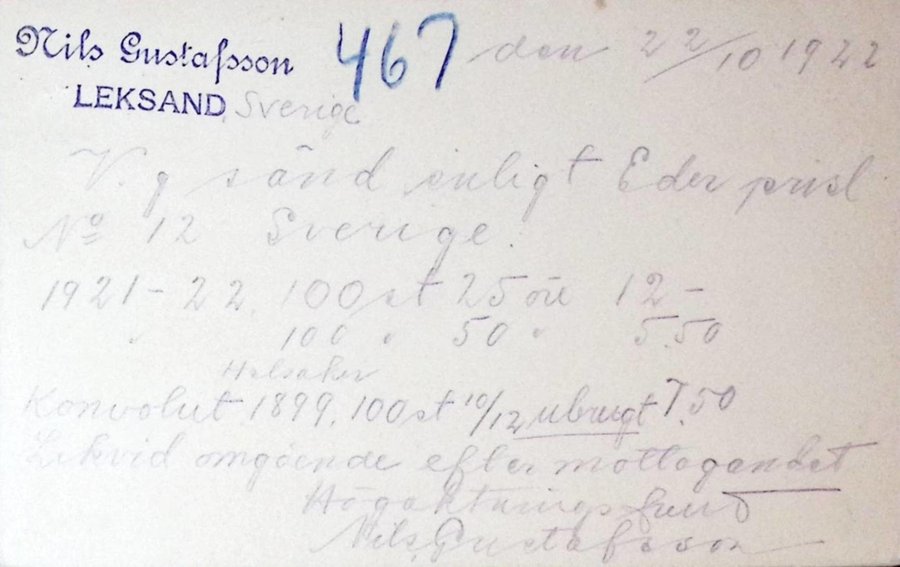 Nils Gustafsson 467 den 22/10 1922
LEKSAND Sverige
V. g sänd enligt Eder prisl
No 12 Sverige.
1921-22. 100 st 25 öre 12-
" 100 " 50 " 5.50
Konvolut 1899. 100 st 10/12 ubrugt 7.50
Likvid omgående efter mottagandet
Högaktningsfullt
Nils Gustafsson